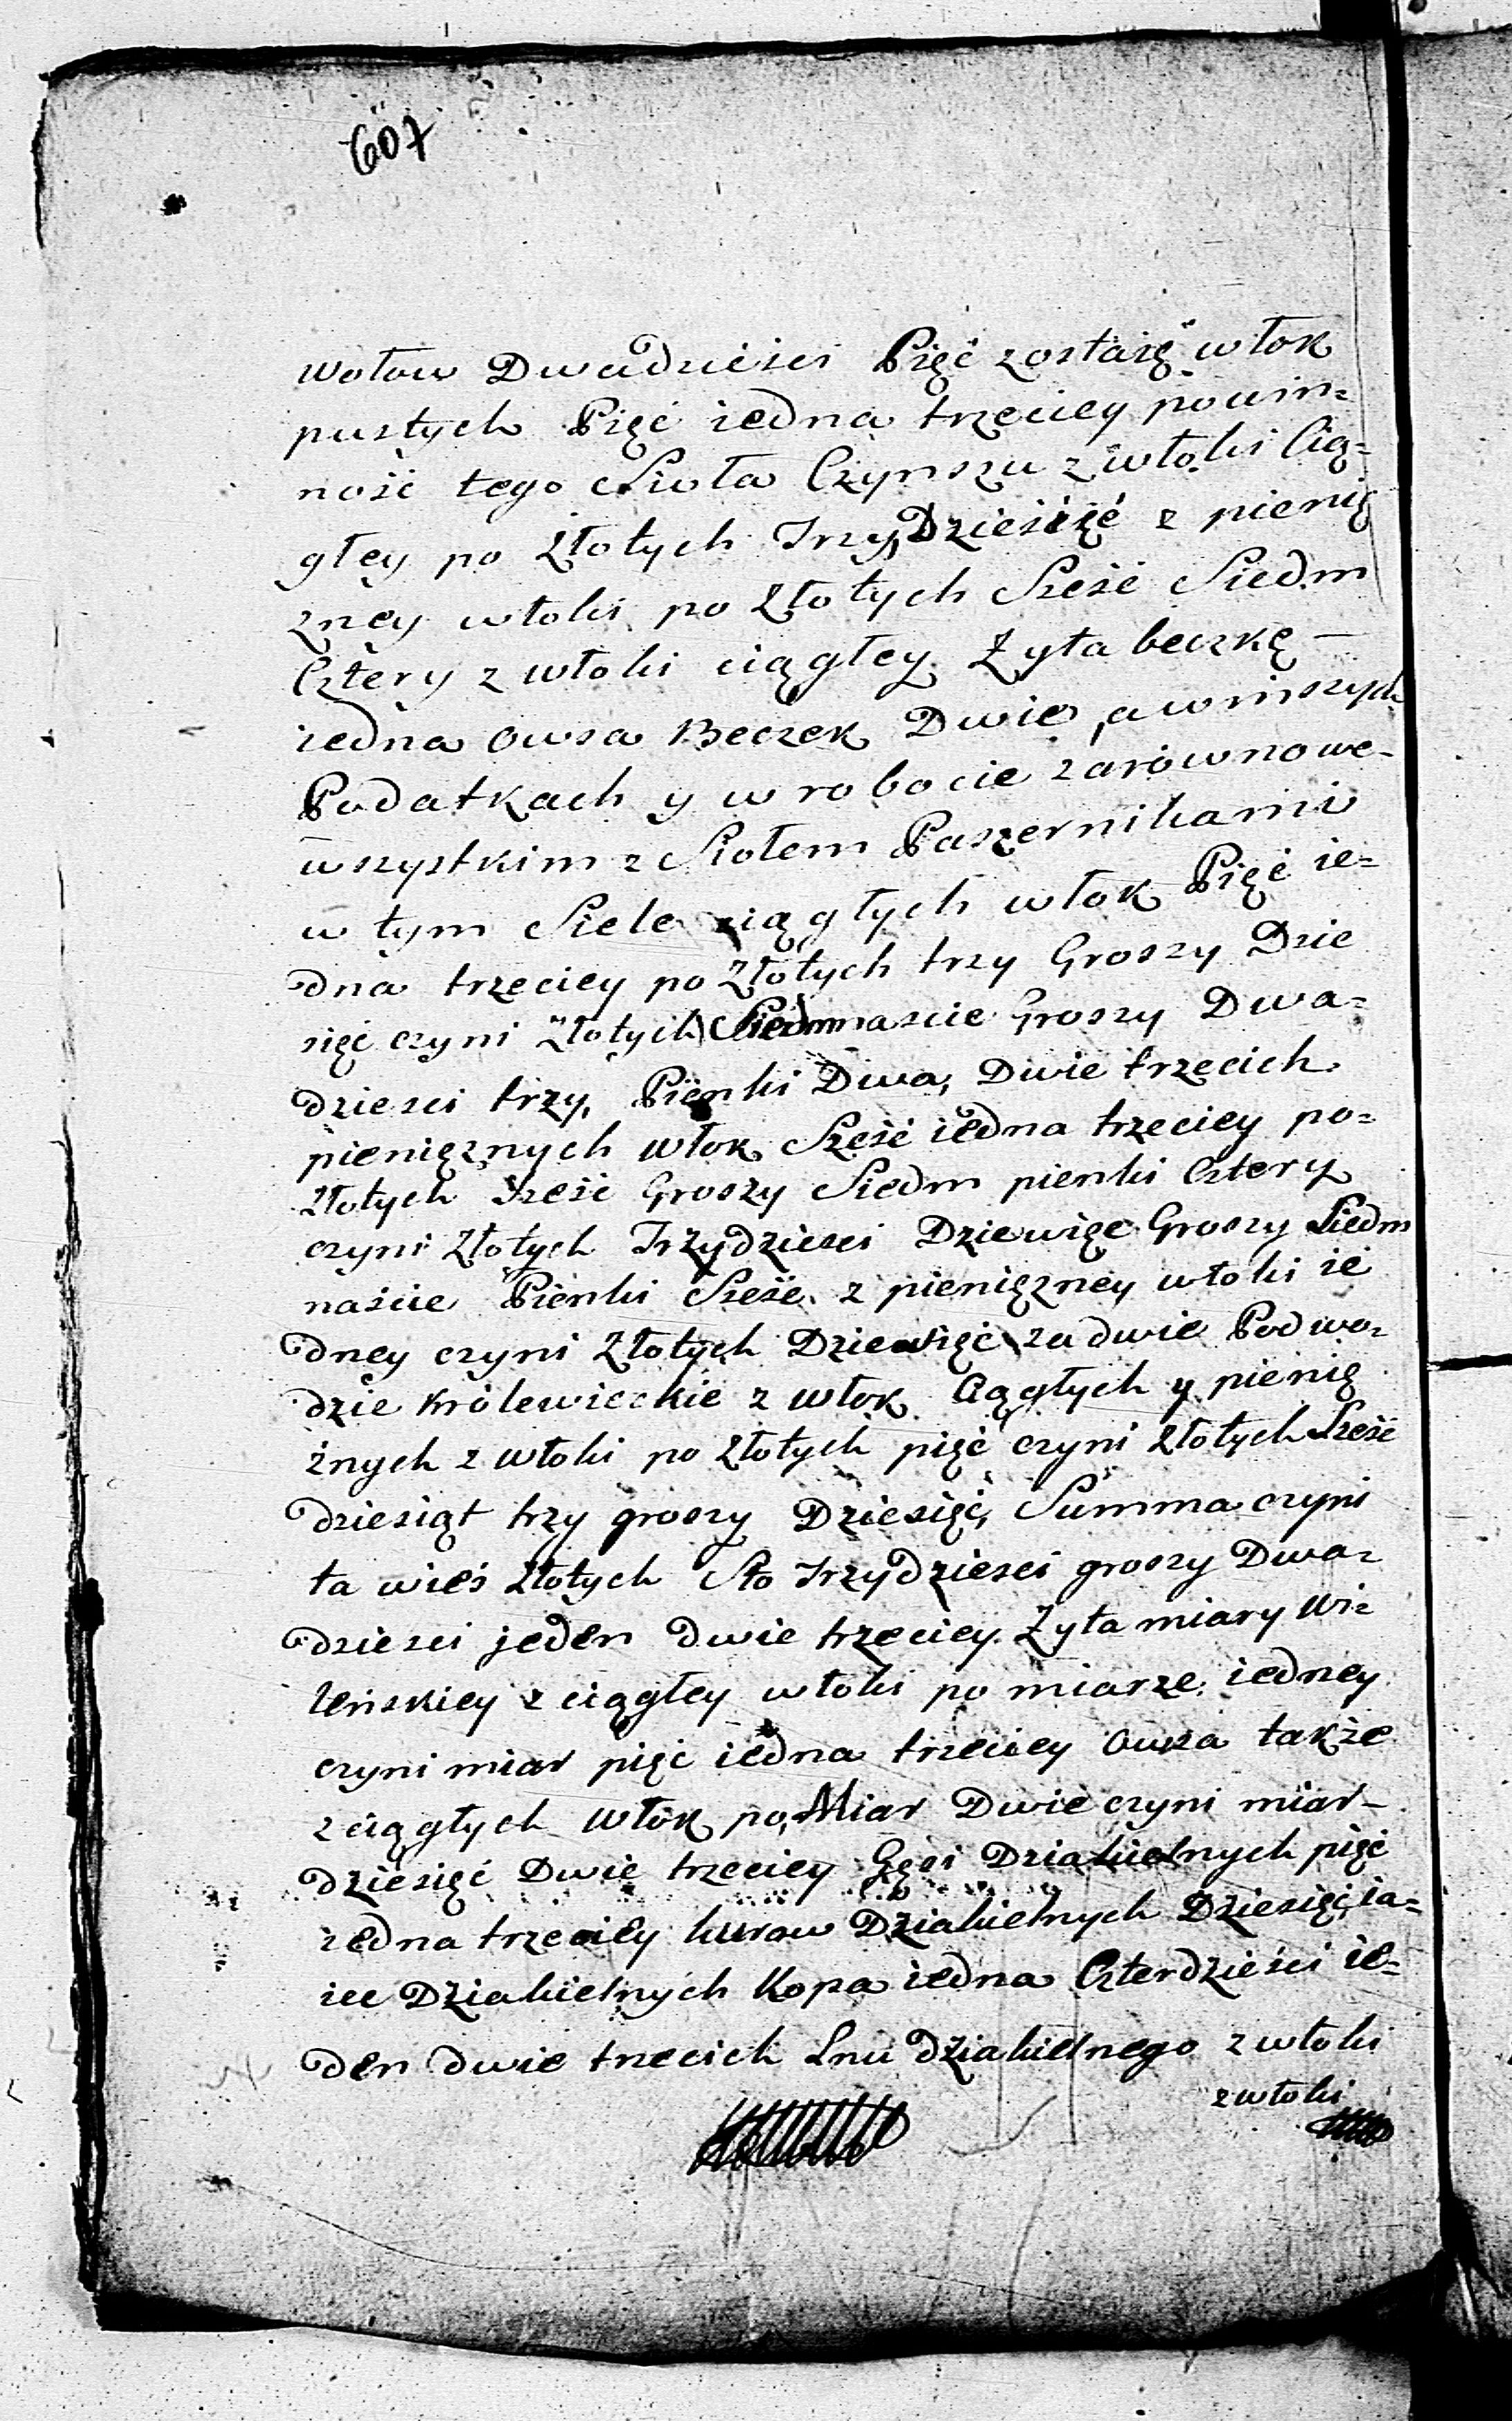 607
wołow Dwadzieści Pięć zostaię włok
pustych Pięć iedna trzeciey powin=
ność tego Sioła Czynszu z włoki Cią=
głey po Złotych Trzy Dziesięć z pienię
zney włoki po Złotych Sześć Siedm
Cztery z włoki ciągłey Zyta beczkę —
iedna Owsa Beczek Dwie, a w inszych
Podatkach y w robocie zarowno we=
wszystkim z Siołem Paszernikami
w tym Siele ciągłych włok Pięć ie=
dna trzeciey po Złotych trzy Groszy Dzie
sięć czyni Złotych Siedmnascie Groszy Dwa=
dziesci trzy, Pienki Dwa, Dwie trzecich
pieniężnych włok Sześć iedna trzeciey po=
Złotych Sześć Groszy Siedm pienki Cztery
czyni Złotych Trzydziesci Dziewięc Groszy Siedm
naście Pienki Sześć z pieniężney włoki ie
dney czyni Złotych Dziewięć za dwie Podwo=
dzie królewieckie z włok Ciągłych y pienię
żnych z włoki po Złotych pięć czyni Złotych Sześć
dziesiąt trzy groszy Dziesięć, Summa czyni
ta wieś Złotych Sto Trzydziesci groszy Dwa=
dziesci jeden dwie trzeciey Zyta miary Wi=
leńskiey z ciągłey włoki po miarze iedney
czyni miar pięć iedna trzeciey Owsa także
z ciągłych włok po Miar Dwie czyni miar—
dziesięć Dwie trzeciey Gęsi Dziakielnych pięć
iedna trzeciey kurow Dziakielnych Dziesięć, ia=
iec Dziakielnych Kopa iedna Czterdzieści ie=
den dwie trzecich Lnu dziakielnego z włoki
z włoki